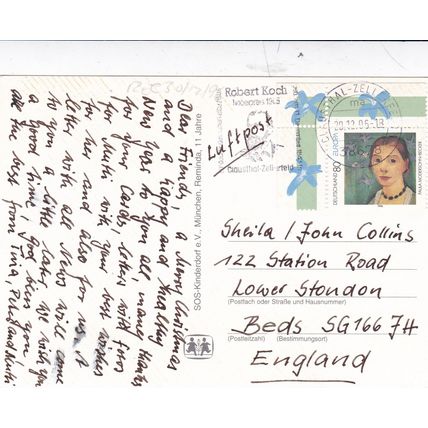 Rec 30/12/96
Dear Friends, a Merry Christmas
and a Happy and Healthy
New Year to you all, many thanks
for your Cards, letters with fuss
for Muth with your best wishes
for her and also for us. A
letter with all News will come
to you a little later. We wish you
a good time, God bless you
all, the best from Tina,
SOS-Kinderdorf e.V., München, Reminda, 11 Jahre
Robert Koch
Clausthal-Zellerfeld
Luftpost
CLAUSTHAL-ZELLERFELD
20.12.96-18
DEUTSCHLAND 80 EUROPA
PAULA MODERSOHN-BECKER
Sheila / John Collins
122 Station Road
(Postfach oder Straße und Hausnummer)
Lower Stondon
Beds SG166JH
(Postleitzahl) (Bestimmungsort)
England